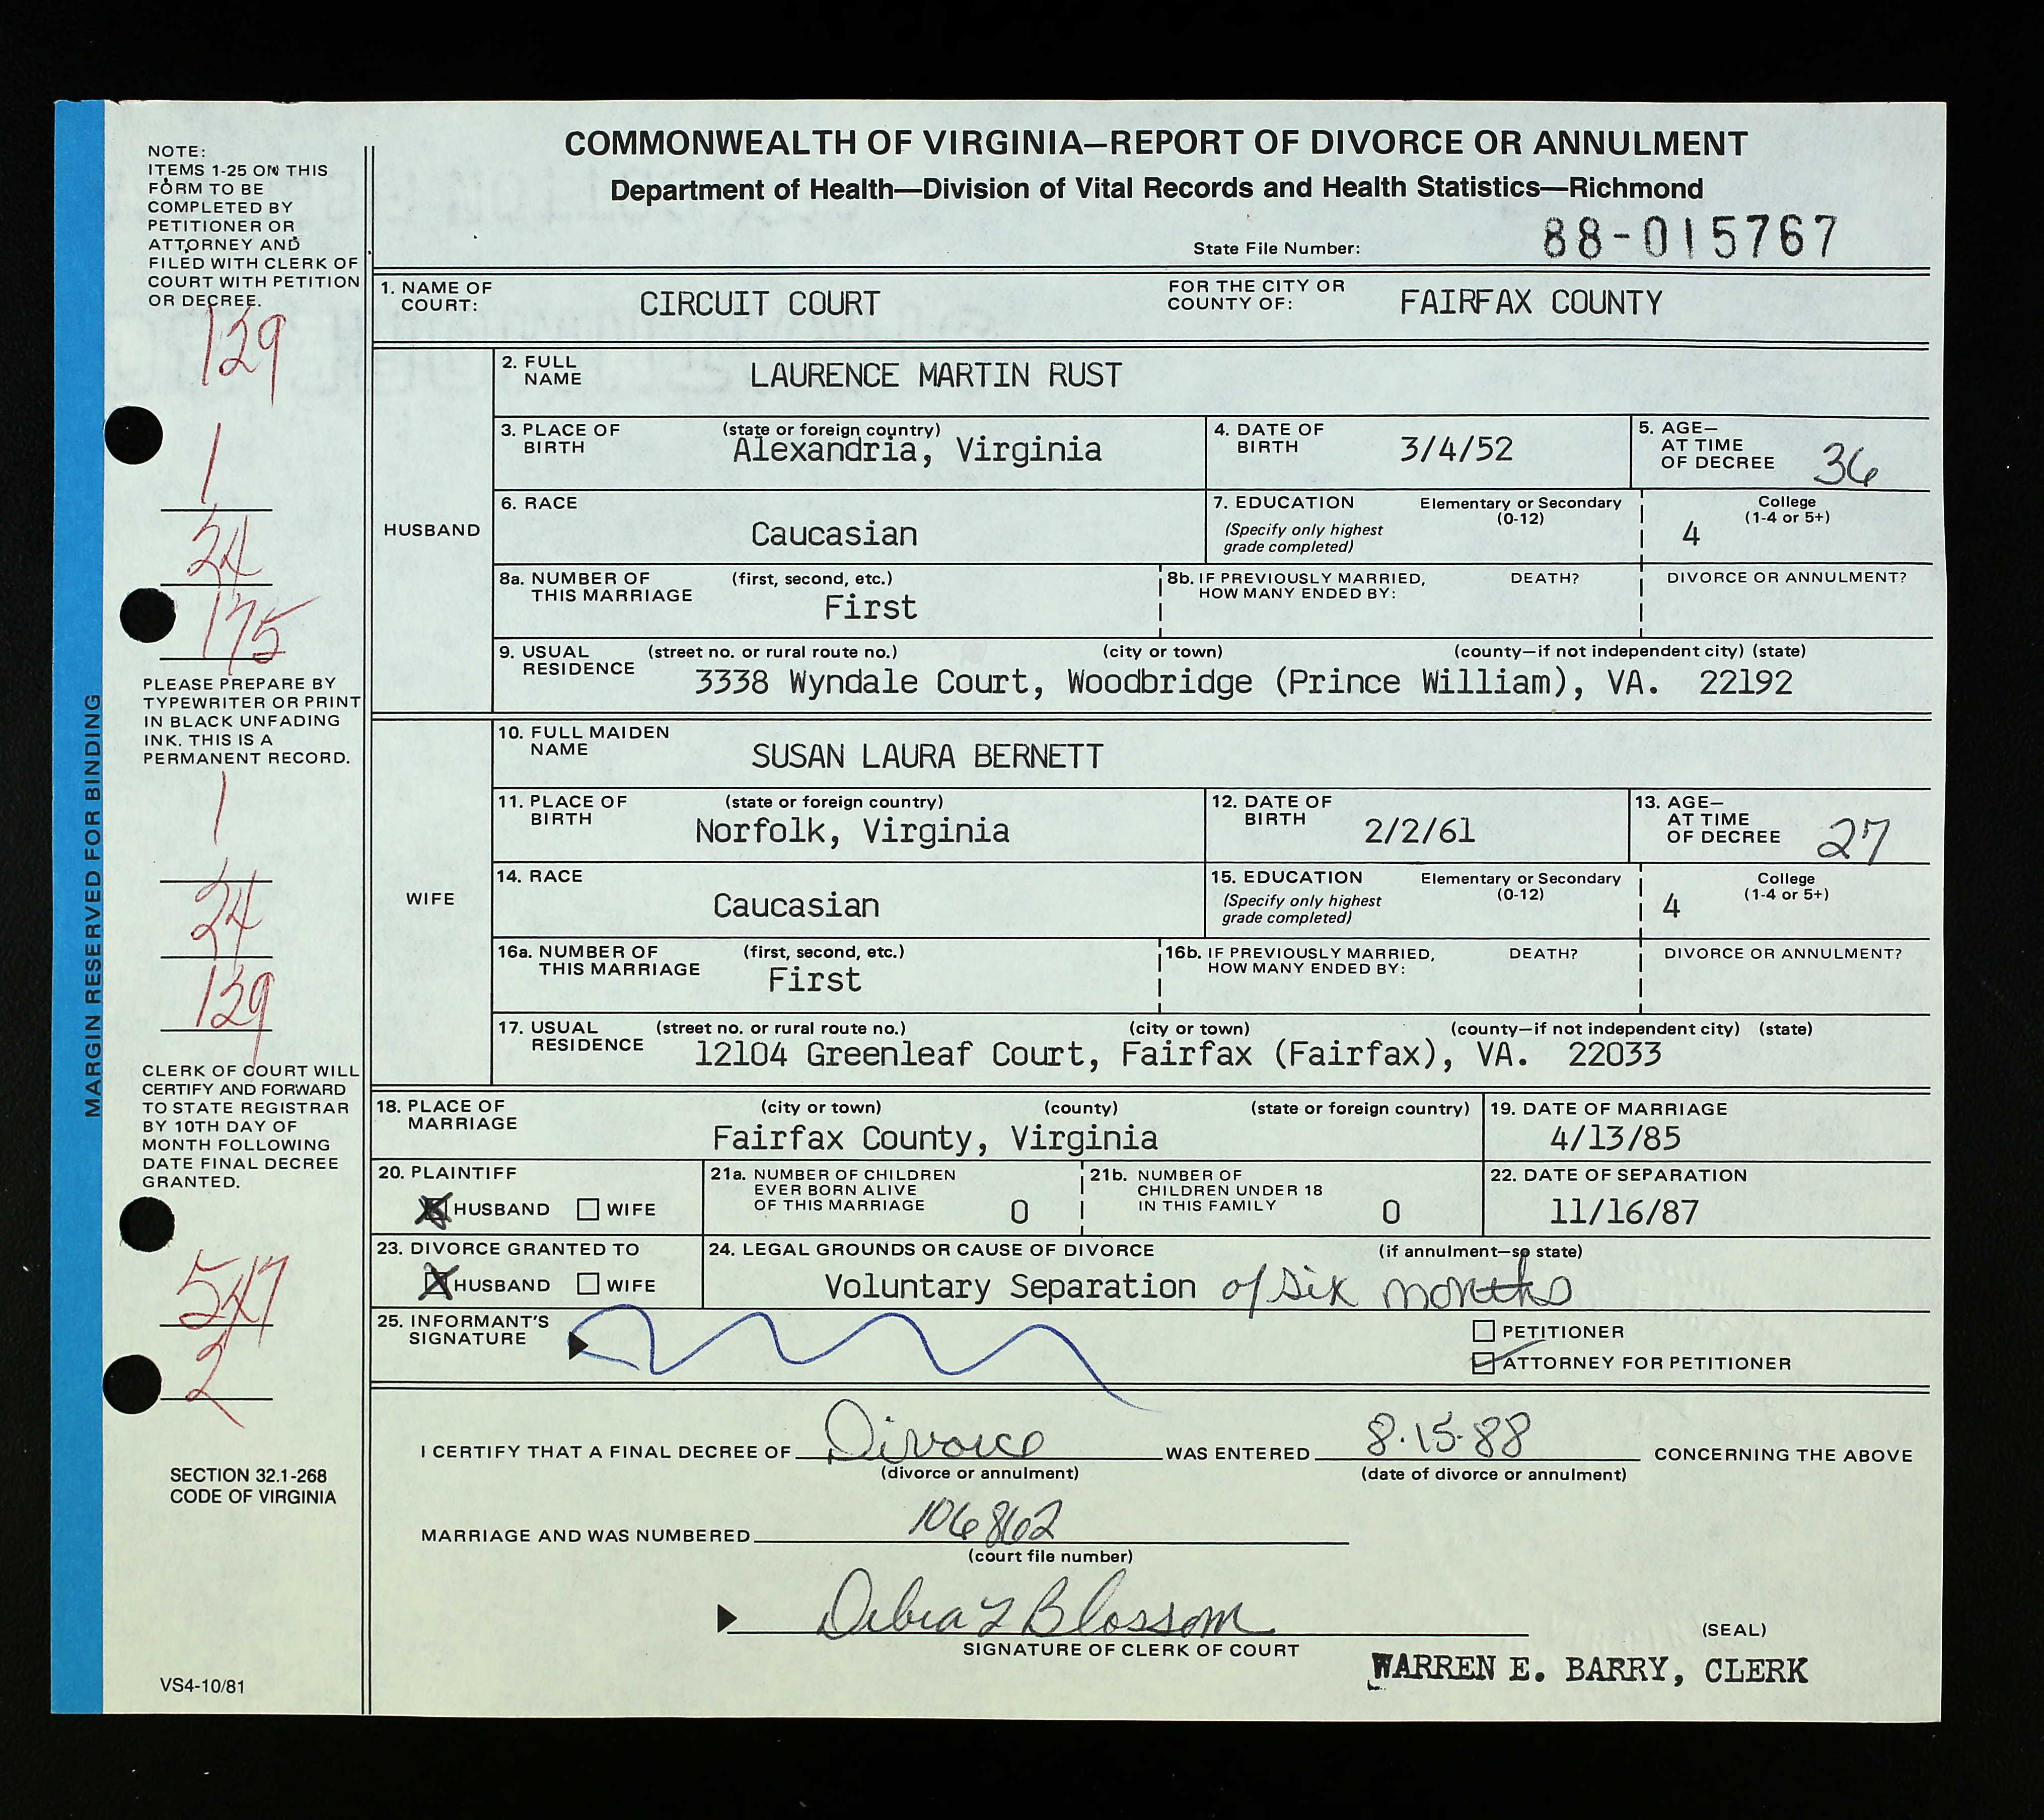 COMMONWEALTH OF VIRGINIA—REPORT OF DIVORCE OR ANNULMENT
Department of Health—Division of Vital Records and Health Statistics—Richmond
State File Number: 88-015767
NOTE:
ITEMS 1-25 ON THIS
FORM TO BE
COMPLETED BY
PETITIONER OR
ATTORNEY AND
FILED WITH CLERK OF
COURT WITH PETITION
OR DECREE.
129
1
24
175
PLEASE PREPARE BY
TYPEWRITER OR PRINT
IN BLACK UNFADING
INK. THIS IS A
PERMANENT RECORD.
1
24
129
CLERK OF COURT WILL
CERTIFY AND FORWARD
TO STATE REGISTRAR
BY 10TH DAY OF
MONTH FOLLOWING
DATE FINAL DECREE
GRANTED.
547
2
SECTION 32.1-268
CODE OF VIRGINIA
VS4-10/81
MARGIN RESERVED FOR BINDING
1. NAME OF COURT: CIRCUIT COURT FOR THE CITY OR COUNTY OF: FAIRFAX COUNTY
HUSBAND
2. FULL NAME LAURENCE MARTIN RUST
3. PLACE OF BIRTH (state or foreign country) Alexandria, Virginia 4. DATE OF BIRTH 3/4/52 5. AGE— AT TIME OF DECREE 36
6. RACE Caucasian 7. EDUCATION (Specify only highest grade completed) Elementary or Secondary (0-12) College (1-4 or 5+) 4
8a. NUMBER OF THIS MARRIAGE (first, second, etc.) First 8b. IF PREVIOUSLY MARRIED, HOW MANY ENDED BY: DEATH? DIVORCE OR ANNULMENT?
9. USUAL RESIDENCE (street no. or rural route no.) (city or town) (county—if not independent city) (state)
3338 Wyndale Court, Woodbridge (Prince William), VA. 22192
WIFE
10. FULL MAIDEN NAME SUSAN LAURA BERNETT
11. PLACE OF BIRTH (state or foreign country) Norfolk, Virginia 12. DATE OF BIRTH 2/2/61 13. AGE— AT TIME OF DECREE 27
14. RACE Caucasian 15. EDUCATION (Specify only highest grade completed) Elementary or Secondary (0-12) College (1-4 or 5+) 4
16a. NUMBER OF THIS MARRIAGE (first, second, etc.) First 16b. IF PREVIOUSLY MARRIED, HOW MANY ENDED BY: DEATH? DIVORCE OR ANNULMENT?
17. USUAL RESIDENCE (street no. or rural route no.) (city or town) (county—if not independent city) (state)
12104 Greenleaf Court, Fairfax (Fairfax), VA. 22033
18. PLACE OF MARRIAGE (city or town) (county) (state or foreign country) Fairfax County, Virginia 19. DATE OF MARRIAGE 4/13/85
20. PLAINTIFF HUSBAND WIFE 21a. NUMBER OF CHILDREN EVER BORN ALIVE OF THIS MARRIAGE 0 21b. NUMBER OF CHILDREN UNDER 18 IN THIS FAMILY 0 22. DATE OF SEPARATION 11/16/87
23. DIVORCE GRANTED TO HUSBAND WIFE 24. LEGAL GROUNDS OR CAUSE OF DIVORCE (if annulment—so state) Voluntary Separation of six months
25. INFORMANT'S SIGNATURE PETITIONER
ATTORNEY FOR PETITIONER
I CERTIFY THAT A FINAL DECREE OF Divorce WAS ENTERED 8-15-88 CONCERNING THE ABOVE
(divorce or annulment) (date of divorce or annulment)
MARRIAGE AND WAS NUMBERED 106862
(court file number)
Debra L Blossom
SIGNATURE OF CLERK OF COURT (SEAL)
WARREN E. BARRY, CLERK